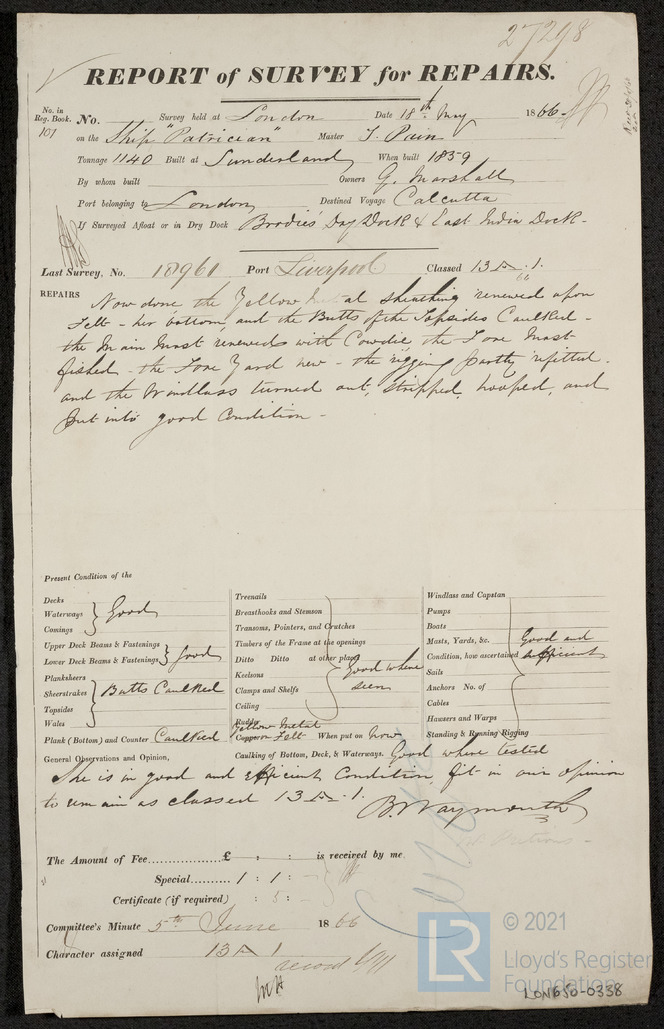 27298
REPORT of SURVEY for REPAIRS.
No. in Reg. Book. 101 No. Survey held at London Date 18th May 1866
on the Ship "Patrician" Master T. Pain
Tonnage 1140 Built at Sunderland When built 1859
By whom built Owners G. Marshall
Port belonging to London Destined Voyage Calcutta
If Surveyed Afloat or in Dry Dock Brodies Dry Dock & East India Dock.
Last Survey, No. 18961 Port Liverpool Classed 13 A. 1.
66
REPAIRS Now done the Yellow Metal sheathing renewed upon
Felt - her bottom, and the Butts of the Topsides Caulked -
the Main Mast renewed with Cowdie, the Fore Mast
fished - the Fore Yard new - the rigging partly refitted.
and the Windlass turned out, stripped, hooped, and
put into good Condition -
Present Condition of the
Decks
Waterways Good
Comings
Upper Deck Beams & Fastenings
Lower Deck Beams & Fastenings Good
Planksheers
Sheerstrakes Butts Caulked
Topsides
Wales
Plank (Bottom) and Counter Caulked
Treenails
Breasthooks and Stemson
Transoms, Pointers, and Crutches
Timbers of the Frame at the openings
Ditto Ditto at other places
Keelsons Good where
Clamps and Shelfs seen
Ceiling
Rudder
Yellow Metal
Copper Felt When put on Now
Windlass and Capstan
Pumps
Boats
Masts, Yards, &c. Good and
Condition, how ascertained sufficient
Sails
Anchors No. of
Cables
Hawsers and Warps
Standing & Running Rigging
General Observations and Opinion, Caulking of Bottom, Deck, & Waterways. Good where tested
She is in good and efficient Condition fit in our opinion
to remain as classed 13 A. 1.
B. Waymouth
The Amount of Fee................£ : : is received by me
Special.......... 1 : 1 : -
Certificate (if required) : 5 : -
Committee's Minute 5th June 1866
Character assigned 13 A 1
record
LR
© 2021
Lloyd's Register
Foundation
LON650-0338